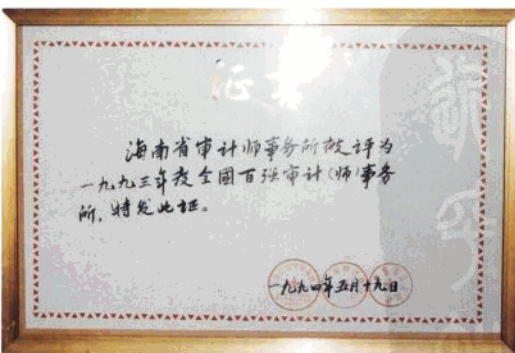 证书
海南省审计师事务所被评为
一九九三年度全國百强审计(师)事务
所，特发此证。
一九九四年五月十九日